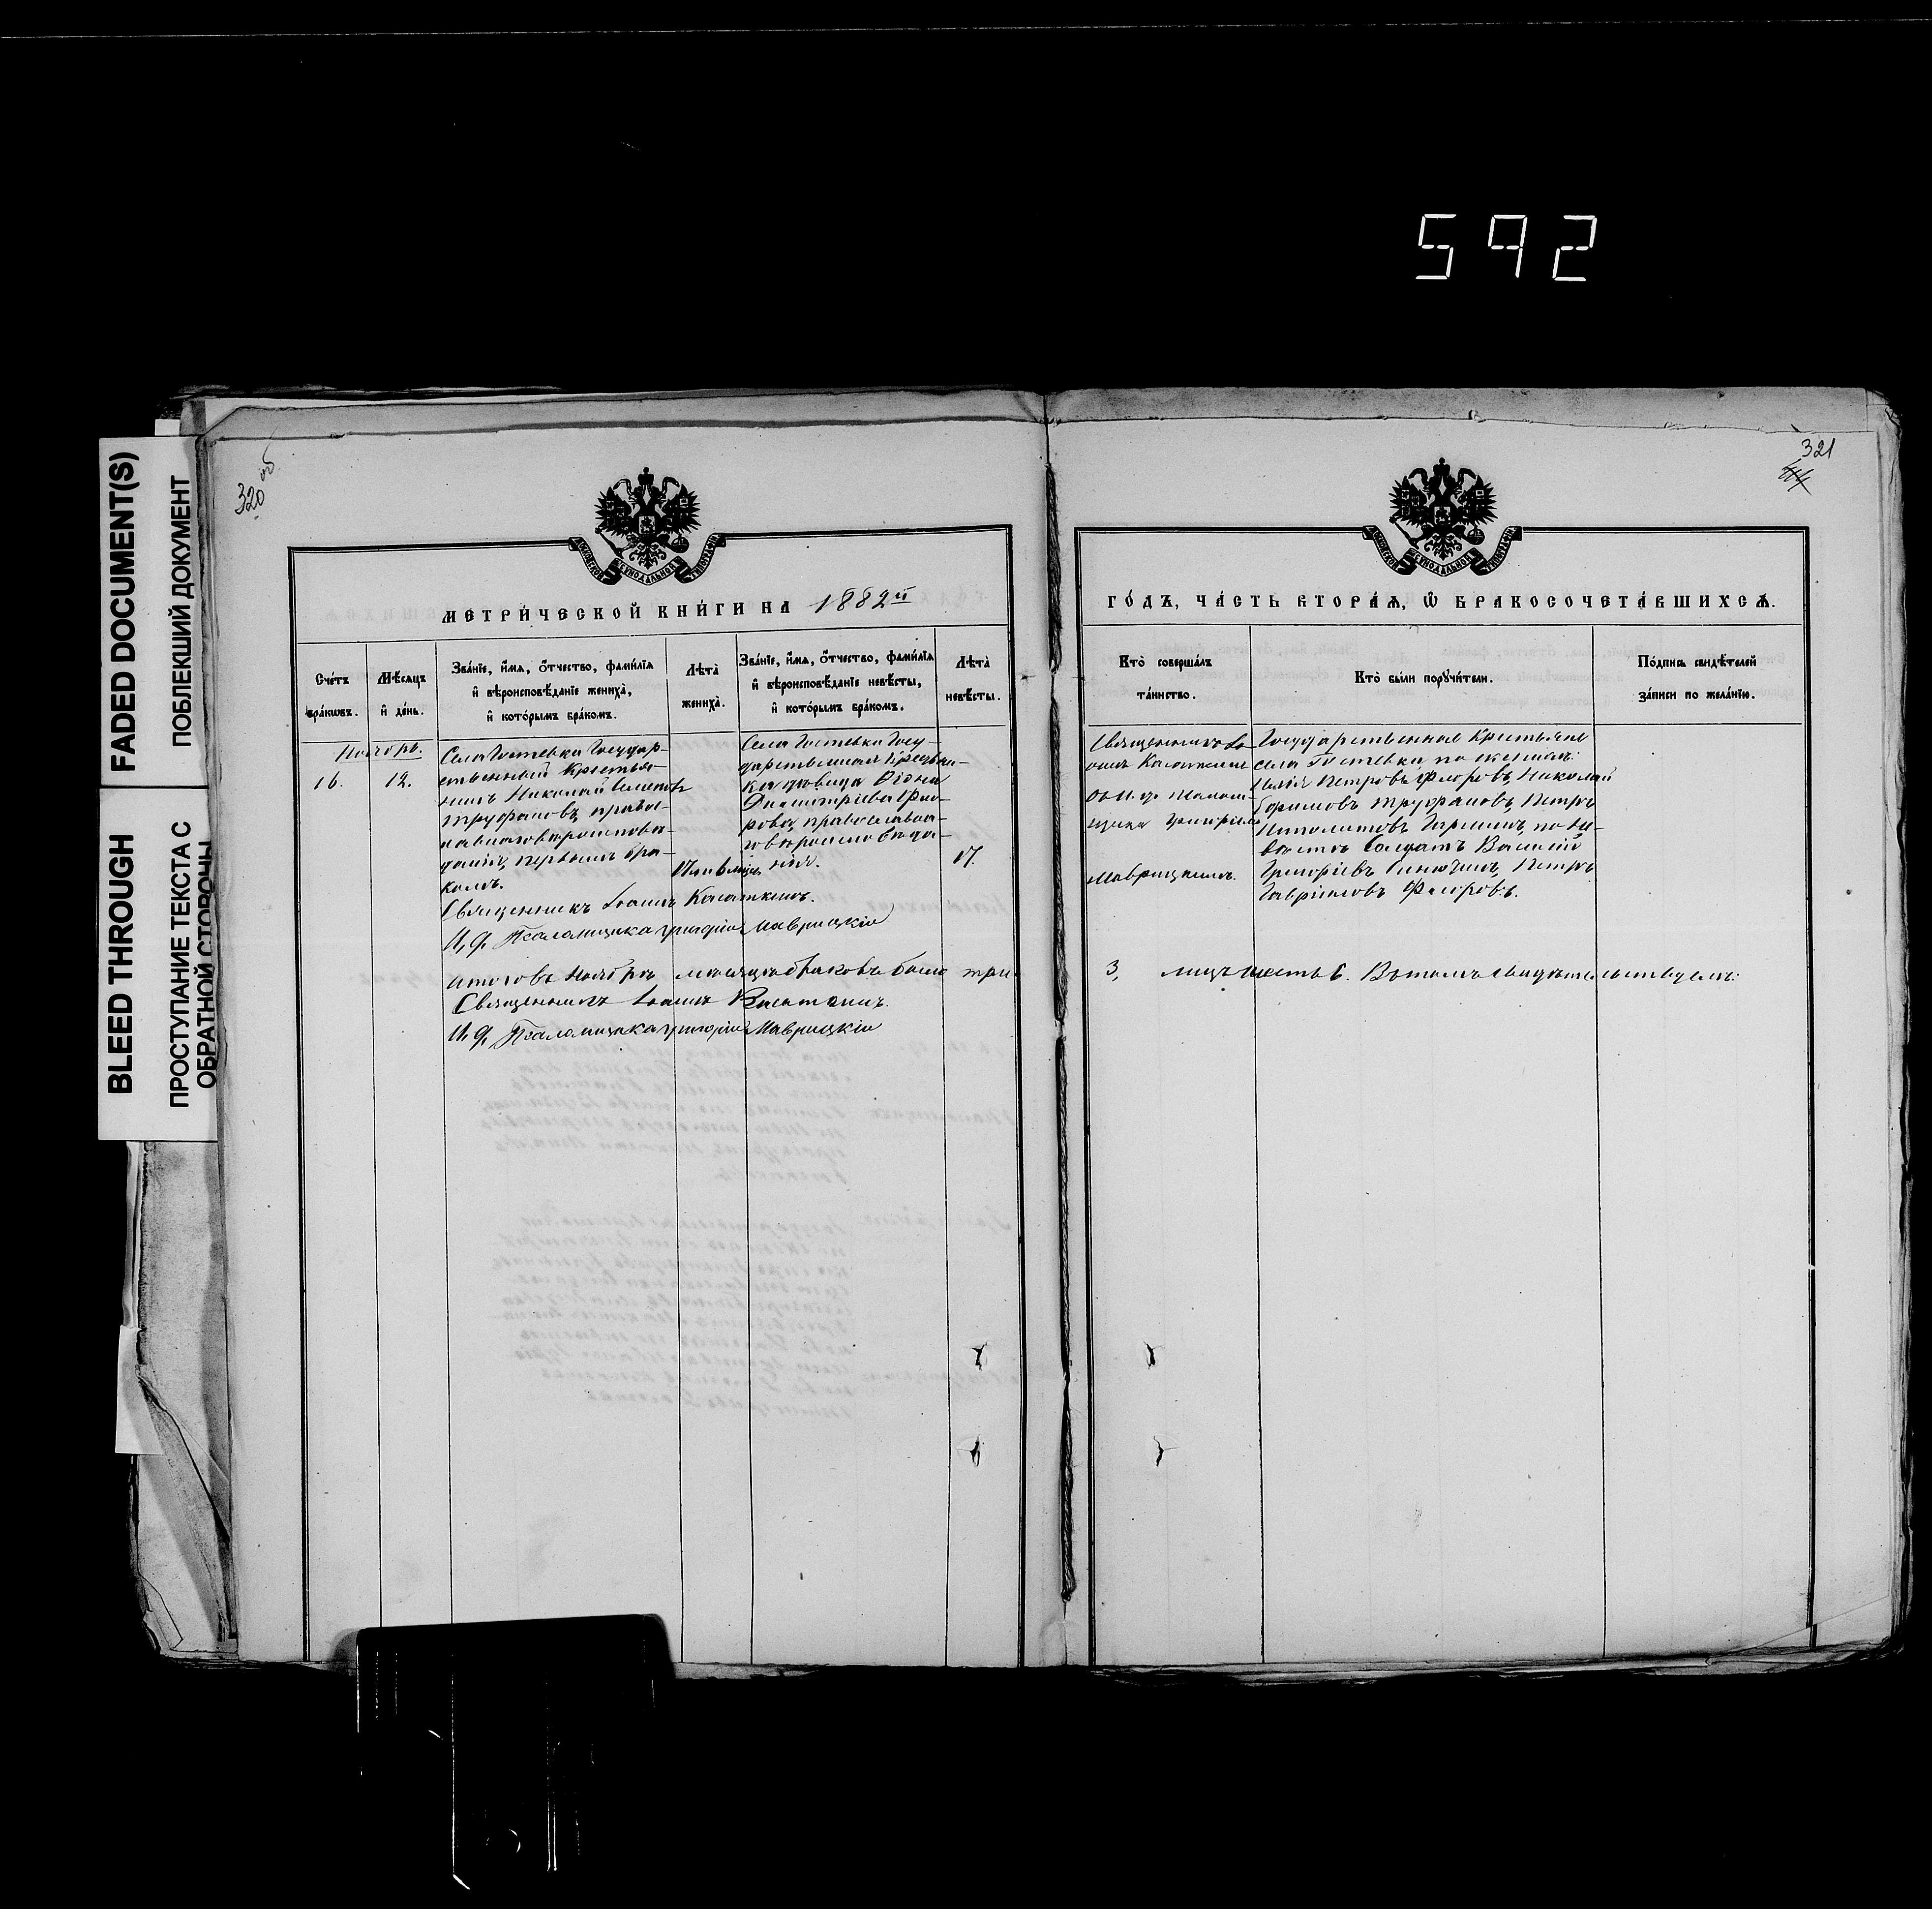 592
FADED DOCUMENT(S)
ПОБЛЕКШИЙ ДОКУМЕНТ
BLEED THROUGH
ПРОСТУПАНИЕ ТЕКСТА С
ОБРАТНОЙ СТОРОНЫ
320 об
МЕТРИ́ЧЕСКОЙ КНИ́ГИ НА 1882й
Сче́тъ бра́кѡвъ.
Мѣ́сяцъ и҆ де́нь.
Зва́нїе, и҆́мѧ, ѻ҆́тчество, фами́лїѧ
и҆ вѣроисповѣ́данїе женихà,
и҆ кото́рымъ бра́комъ.
Лѣтà
женихà.
Зва́нїе, и҆́мѧ, ѻ҆́тчество, фами́лїѧ
и҆ вѣроисповѣ́данїе невѣ́сты,
и҆ кото́рымъ бра́комъ.
Лѣтà
невѣ́сты.
Ноябрь.
16.
12.
Села Государ-
ственный Крестья-
нинъ Николай
Труфановъ, право-
славнаго вѣроисповѣ-
данія, первымъ бра-
комъ.
Села Госу-
дарственная Крестьян-
ка девица
Димитріева Фло-
рова, православна-
го вѣроисповѣда-
нія.
17.
Священникъ Іоаннъ Касаткинъ.
И, д, Псаломщика Григорій Маврицкій
Итого въ Ноябрѣ мѣсяцѣ браковъ было три
Священникъ Іоаннъ Касаткинъ.
И, д, Псаломщика Григорій Маврицкій
321
ГО́ДЪ, ЧА́СТЬ ВТОРА́Ѧ, Ѡ҆ БРАКОСОЧЕТА́ВШИХСѦ.
Ктò соверша́лъ
та́инство.
Ктò бы́ли порꙋчи́тели.
По́дпись свидѣ́телей
за́писи по жела́нїю.
Священникъ Іо-
аннъ Касаткинъ
съ и. д. Псалом-
щика Григоріемъ
Маврицкимъ.
Государственные Крестьяне
села по женихѣ:
Петровъ Флоровъ, Николай
Ефимовъ Труфановъ, Петръ
по не-
вѣстѣ Солдатъ Василій
Григорьевъ Петръ
Гавриловъ Флоровъ.
3, лицъ шесть 6. Въ томъ свидѣтельствуемъ: